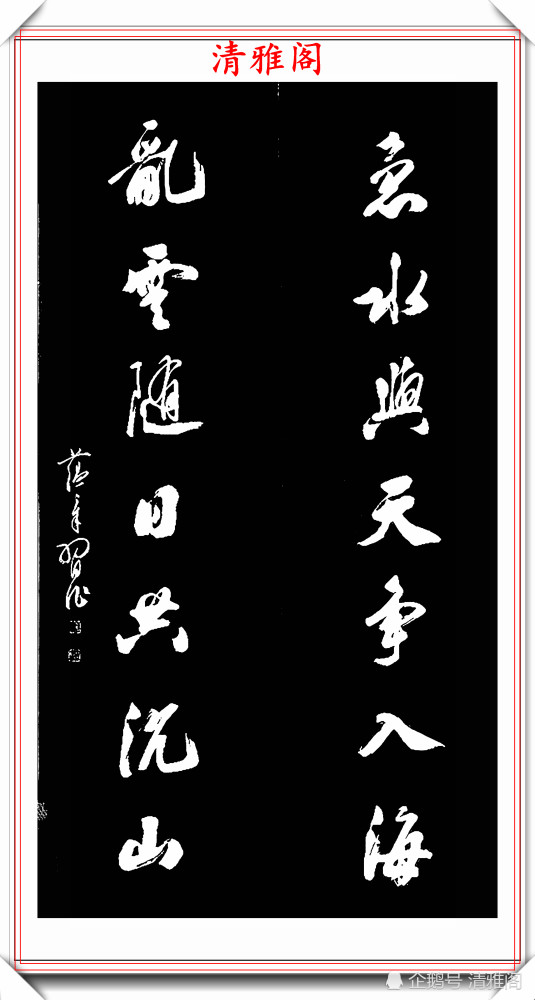 清雅阁
急水與天争入海
亂雲随日共沉山
企鹅号 清雅阁